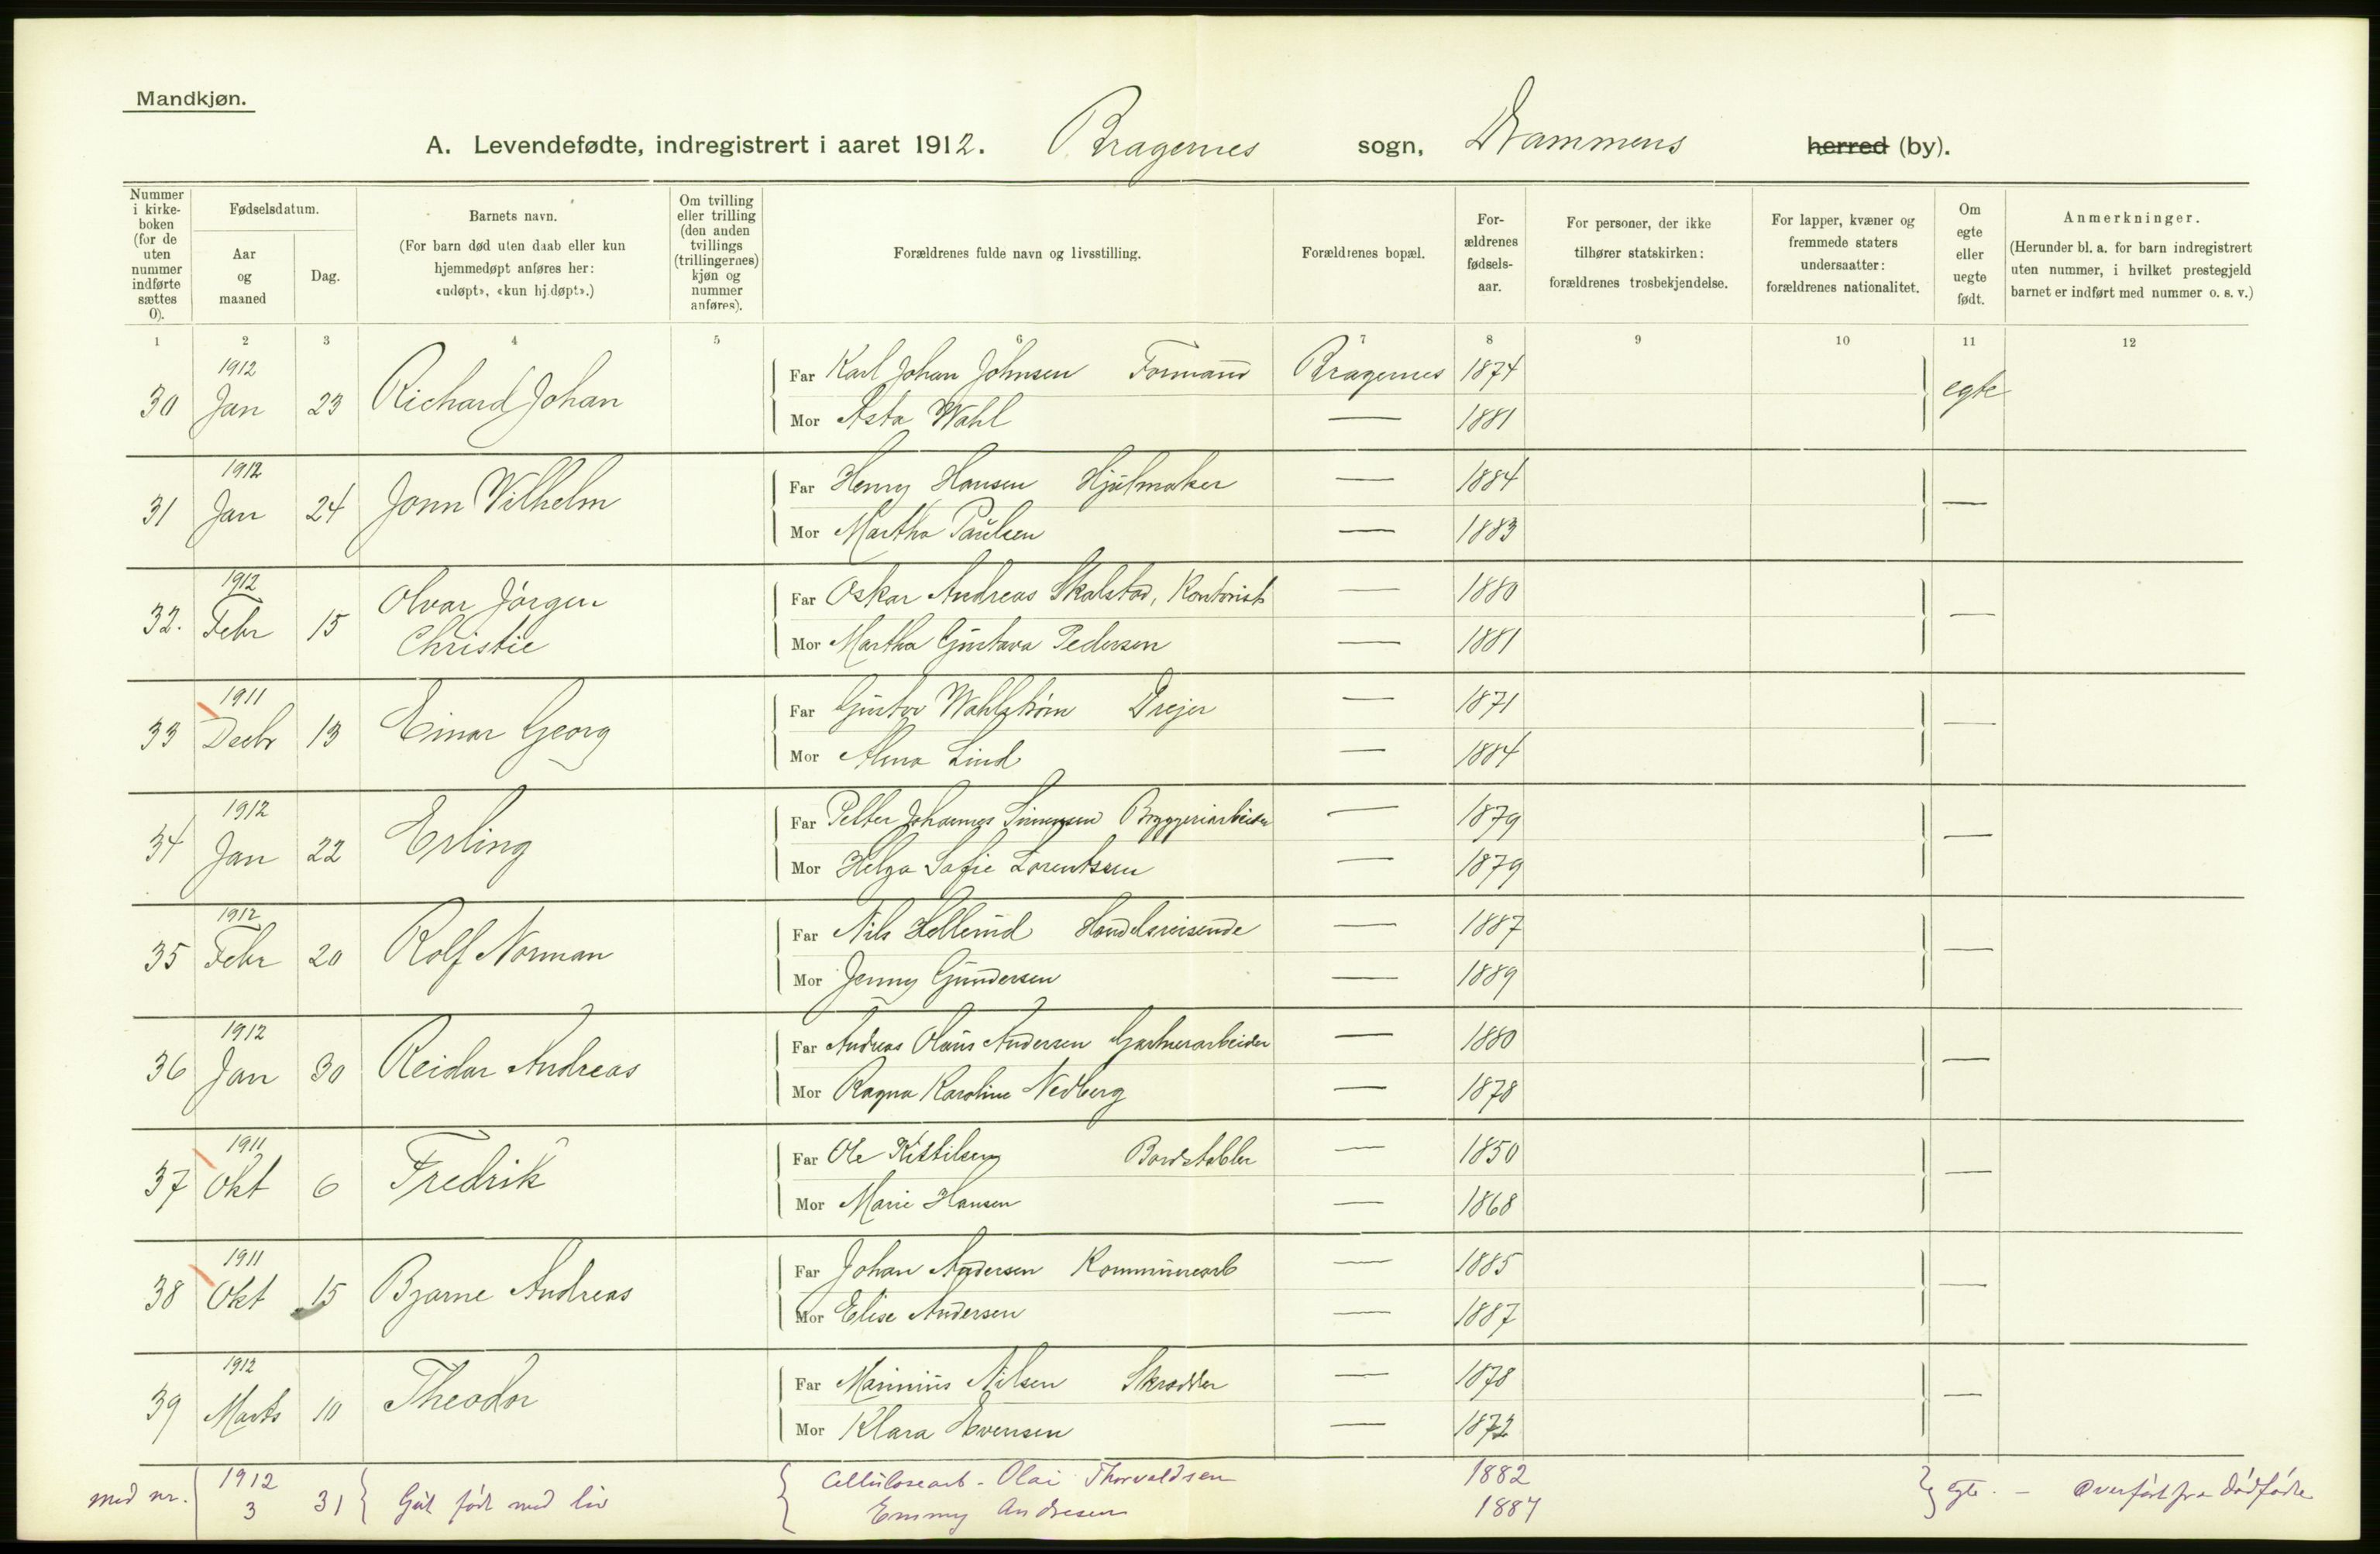 Mandkjøn.
A. Levendefødte, indregistrert i aaret 1912. Bragernes sogn, Drammens herred (by).
Nummer i kirke-boken (for de uten nummer indførte sættes 0).
Fødselsdatum.
Aar og maaned
Dag.
Barnets navn.
(For barn død uten daab eller kun hjemmedøpt anføres her: «udøpt», «kun hj.døpt».)
Om tvilling eller trilling (den anden tvillings (trillingernes) kjøn og nummer anføres).
Forældrenes fulde navn og livsstilling.
Forældrenes bopæl.
For-ældrenes fødsels-aar.
For personer, der ikke tilhører statskirken: forældrenes trosbekjendelse.
For lapper, kvæner og fremmede staters undersaatter: forældrenes nationalitet.
Om egte eller uegte født.
Anmerkninger.
(Herunder bl. a. for barn indregistrert uten nummer, i hvilket prestegjeld barnet er indført med nummer o. s. v.)
1 2 3 4 5 6 7 8 9 10 11 12
30 1912 Jan 23 Richard Johan Far Karl Johan Johnsen Formand Bragernes 1874 egte
Mor Asta Wahl — 1881
31 1912 Jan 24 Jonn Vilhelm Far Henry Hansen Hjulmaker — 1884 —
Mor Martha Paulsen — 1883
32. 1912 Febr 15 Olvar Jörgen Christie Far Oskar Andreas Skalstad, Kontorist — 1880 —
Mor Martha Gustava Pedersen — 1881
33 1911 Decbr 13 Einar Georg Far Gustav Wahlstrøm Drejer — 1871 —
Mor Alma Lind — 1884
34 1912 Jan 22 Erling Far Petter Johannes Simensen Bryggeriarbeider — 1879 —
Mor Helga Sofie Lorentsen — 1879
35 1912 Febr 20 Rolf Norman Far Nils Hellerud Handelsreisende — 1887 —
Mor Jenny Gundersen — 1889
36 1912 Jan 30 Reidar Andreas Far Andreas Olaus Andersen Gartnerarbeider — 1880 —
Mor Ragna Karoline Nedberg — 1878
37 1911 Okt 6 Fredrik Far Ole Kittilsen Bordstabler — 1850 —
Mor Marie Hansen — 1868
38 1911 Okt 15 Bjarne Andreas Far Johan Andersen Kommunearb — 1885 —
Mor Elise Andersen — 1887
39 1912 Marts 10 Theodor Far Marinius Nilsen Skrædder — 1878 —
Mor Klara Evensen — 1872
med nr. 1912 3 31 Gut født med liv Cellulosearb. Olai Thorvaldsen 1882 egte. — Overført fra dødfødte
Emmy Andresen 1887